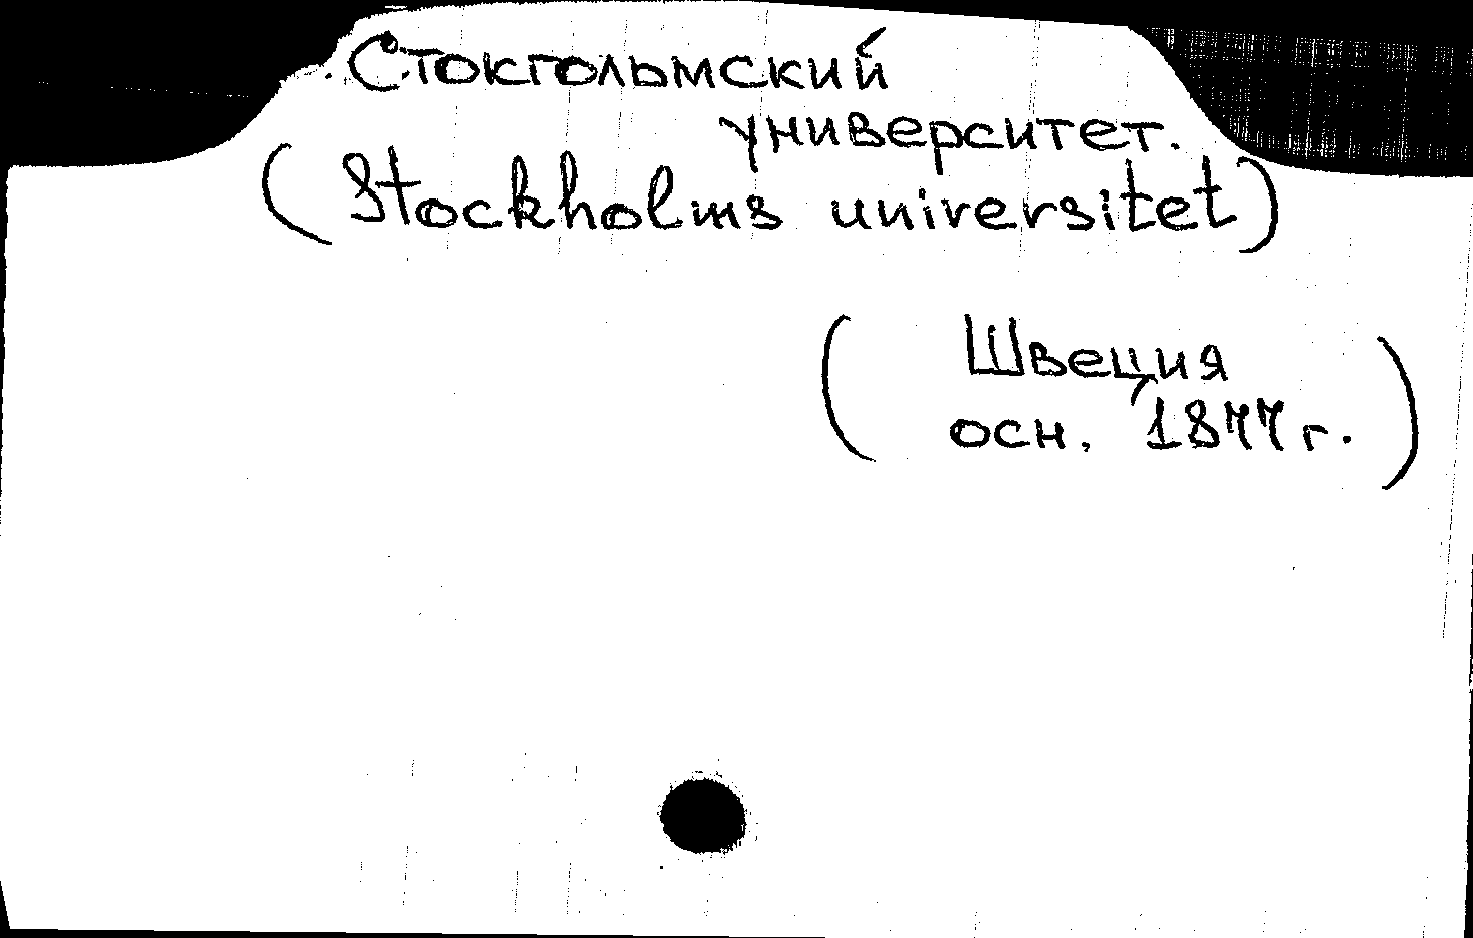 Стокгольмский
университет.
(Stockholms universitet)
(Швеция
осн. 1877 г.)